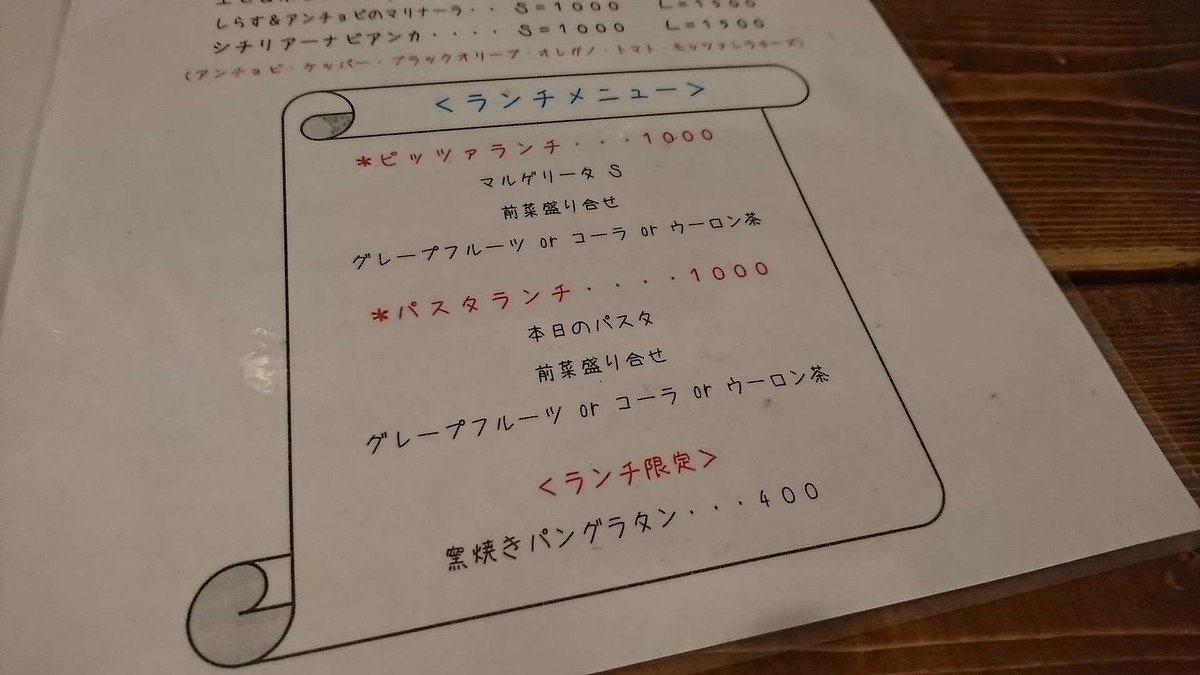 しらす＆アンチョビのマリナーラ・・ S=1000 L=1500
シチリアーナビアンカ・・・・ S=1000 L=1500
(アンチョビ・ケッパー・ブラックオリーブ・オレガノ・トマト・モッツァレラチーズ)
<ランチメニュー>
*ピッツァランチ・・・1000
マルゲリータ S
前菜盛り合せ
グレープフルーツ or コーラ or ウーロン茶
*パスタランチ・・・・1000
本日のパスタ
前菜盛り合せ
グレープフルーツ or コーラ or ウーロン茶
<ランチ限定>
窯焼きパングラタン・・・400